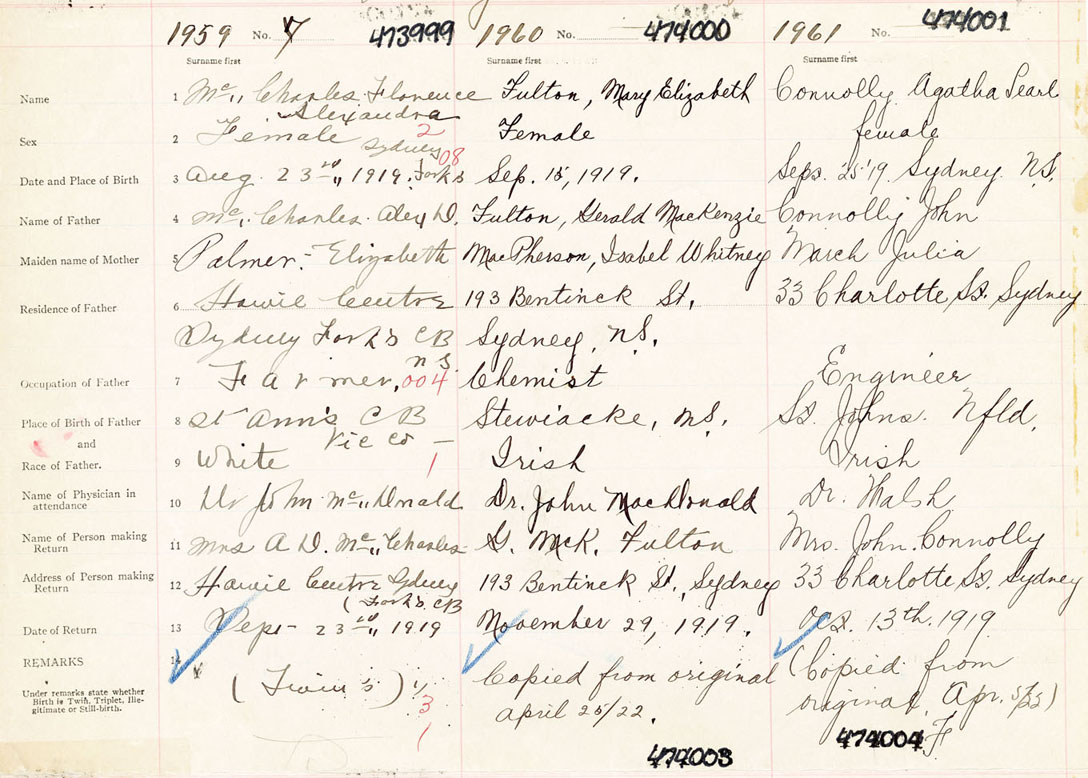 1959 No. 7 473999 1960 No. 474000 1961 No. 474001
Surname first Surname first Surname first
Name 1 Mc,, Charles Florence Fulton, Mary Elizabeth Connolly Agatha Pearl
Alexandra
Sex 2 Female 2 Female female
Sydney 08
Date and Place of Birth 3 Aug. 23rd,, 1919. Forks Sep. 15, 1919. Seps. 25'19 Sydney N.S.
Name of Father 4 Mc,, Charles. Alex D. Fulton, Gerald MacKenzie Connolly John
Maiden name of Mother 5 Palmer - Elizabeth MacPherson, Isabel Whitney March Julia
Residence of Father 6 Howie Centre 193 Bentinck St. 33 Charlotte St. Sydney
Sydney Forks CB Sydney, N.S.
N.S.
Occupation of Father 7 Farmer, 004 Chemist Engineer
Place of Birth of Father 8 St Ann's C B Stewiacke, N.S. St. Johns. Nfld.
and Vic Co –
Race of Father. 9 White 1 Irish Irish
Name of Physician in
attendance 10 Dr John Mc,, Donald Dr. John MacDonald Dr. Walsh
Name of Person making
Return 11 Mrs A D. Mc,, Charles G. McK. Fulton Mrs. John. Connolly
Address of Person making
Return 12 Howie Centre Sydney 193 Bentinck St., Sydney 33 Charlotte St. Sydney
(Forks CB
Date of Return 13 Sept - 23rd,, 1919 November 29, 1919. Oct. 13th. 1919
REMARKS 14 (Twin's) Copied from original (Copied from
Under remarks state whether
Birth is Twin, Triplet, Ille-
gitimate or Still-birth.
3 April 25/22. original. Apr. 5/22)
1
474003 474004 F